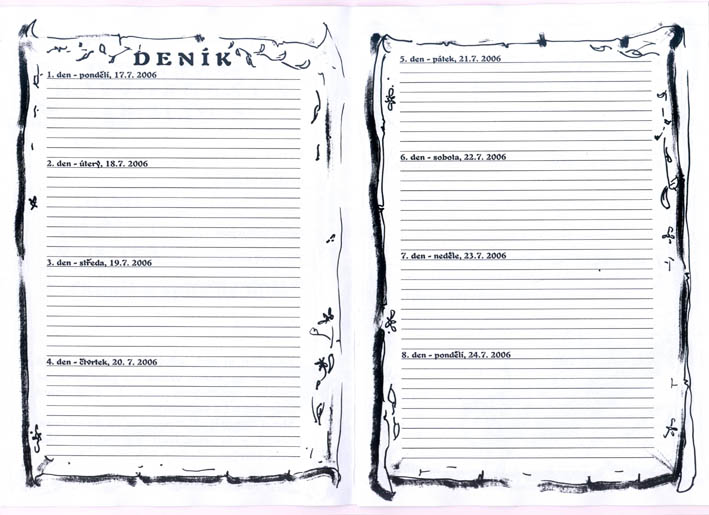 DENÍK
1. den - pondělí, 17.7. 2006
2. den - úterý, 18.7. 2006
3. den - středa, 19.7. 2006
4. den - čtvrtek, 20. 7. 2006
5. den - pátek, 21.7. 2006
6. den - sobota, 22.7. 2006
7. den - neděle, 23.7. 2006
8. den - pondělí, 24.7. 2006